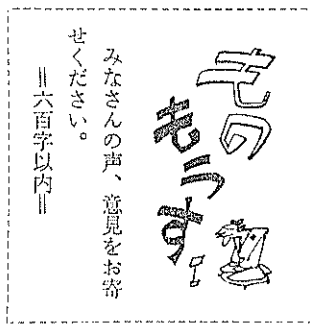 もの
もうす!
みなさんの声、意見をお寄
せください。
＝六百字以内＝